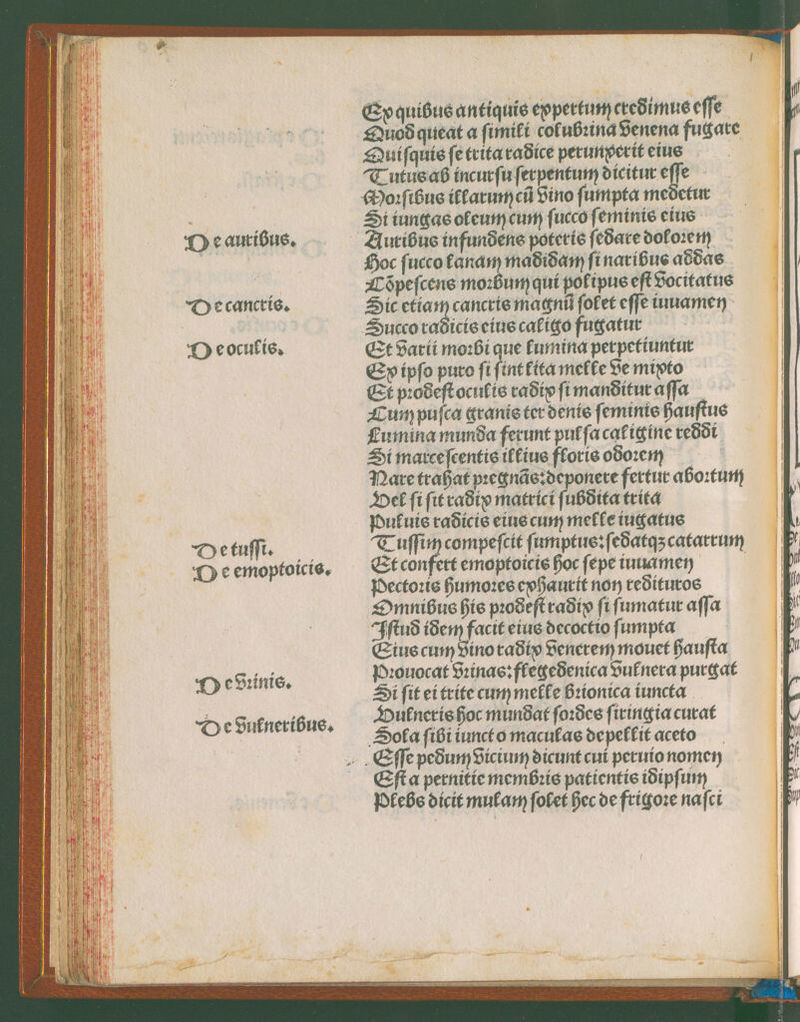 Ex quibus antiquis expertum credimus esse
Quod queat a simili colubrina venena fugare
Quisquis se trita radice perunxerit eius
Tutus ab incursu serpentum dicitur esse
Morsibus illarum cū vino sumpta medetur
Si iungas oleum cum succo seminis eius
De auribus. Auribus infundens poteris sedare dolorem
Hoc succo lanam madidam si naribus addas
Cōpescens morbum qui polipus est vocitatus
De cancris. Sic etiam cancris magnū solet esse iuuamen
Succo radicis eius caligo fugatur
De oculis. Et varii morbi que lumina perpetiuntur
Ex ipso puro si sint lita melle ve mixto
Et prodest oculis radix si manditur assa
Cum pusca granis ter denis seminis haustus
Lumina munda ferunt pulsa caligine reddi
Si marcescentis illius floris odorem
Nare trahat pregnās: deponere fertur abortum
Vel si sit radix matrici subdita trita
Puluis radicis eius cum melle iugatus
De tussi. Tussim compescit sumptus: sedatqꝫ catarrum
De emoptoicis. Et confert emoptoicis hoc sepe iuuamen
Pectoris humores exhaurit non redituros
Omnibus his prodest radix si sumatur assa
Istud idem facit eius decoctio sumpta
Eius cum vino radix venerem mouet hausta
Prouocat vrinas: flegedenica vulnera purgat
De vrinis. Si sit ei trite cum melle brionica iuncta
Vulneris hoc mundat sordes siringia curat
De vulneribus. Sola sibi iuncto maculas depellit aceto
Esse pedum vicium dicunt cui peruio nomen
Est a pernitie membris patientis idipsum
Plebs dicit mulam solet hec de frigore nasci